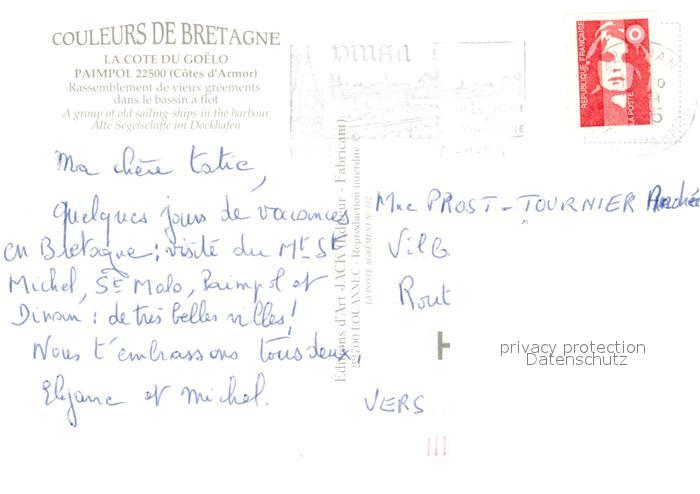 COULEURS DE BRETAGNE
LA COTE DU GOËLO
PAIMPOL 22500 (Côtes d'Armor)
Rassemblement de vieux gréements
dans le bassin à flot
A group of old sailing-ships in the harbour
Alte Segelschiffe im Dockhafen
Ma chère tatie,
Quelques jours de vacances
en Bretagne ; visite du Mt St
Michel, St Malo, Paimpol et
Dinan : de très belles villes !
Nous t'embrassons tous deux.
Elyane et Michel.
Editions d'Art JACK (Editeur - Fabricant)
22700 LOUANNEC - Reproduction interdite ©
LA POSTE AGRÉMENT N°
DINAN
REPUBLIQUE FRANÇAISE
LA POSTE
Mme PROST - TOURNIER Andrée
Vill
Rout
H
VERS
privacy protection
Datenschutz